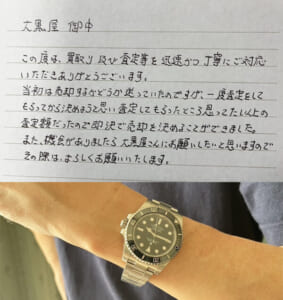 大黒屋 御中
この度は、買取り及び査定等を迅速かつ丁寧にご対応
いただきありがとうございます。
当初は売却するかどうか迷っていたのですが、一度査定をして
もらってから決めようと思い査定してもらったところ思ってた以上の
査定額だったので即決で売却を決めることができました。
また、機会がありましたら大黒屋さんにお願いしたいと思いますので
その際は、よろしくお願いいたします。